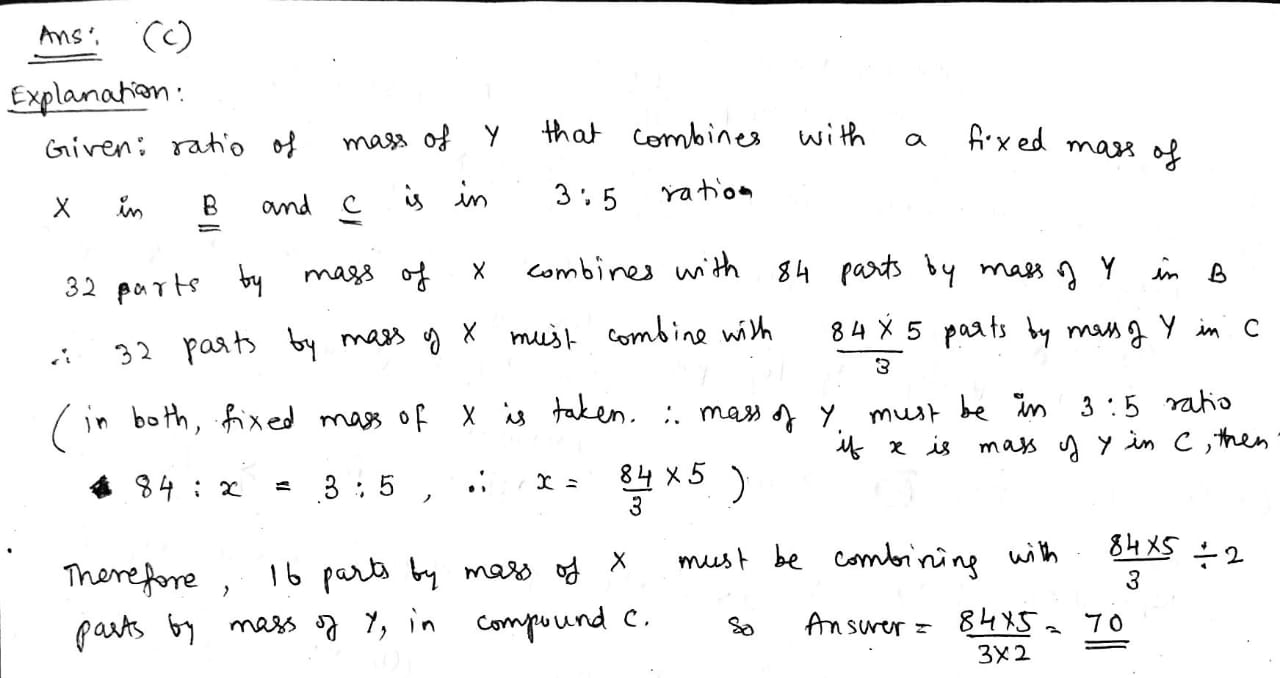 Ans: (C)
Explanation:
Given: ratio of mass of Y that combines with a fixed mass of
X in B and C is in 3:5 ration
32 parts by mass of X combines with 84 parts by mass of Y in B
∴ 32 parts by mass of X must combine with 84 × 5 / 3 parts by mass of Y in C
(in both, fixed mass of X is taken. ∴ mass of Y must be in 3:5 ratio
if x is mass of Y in C, then
84 : x = 3 : 5, ∴ x = 84 × 5 / 3 )
Therefore, 16 parts by mass of X must be combining with 84×5 / 3 ÷ 2
parts by mass of Y, in compound C. So Answer = 84×5 / 3×2 = 70